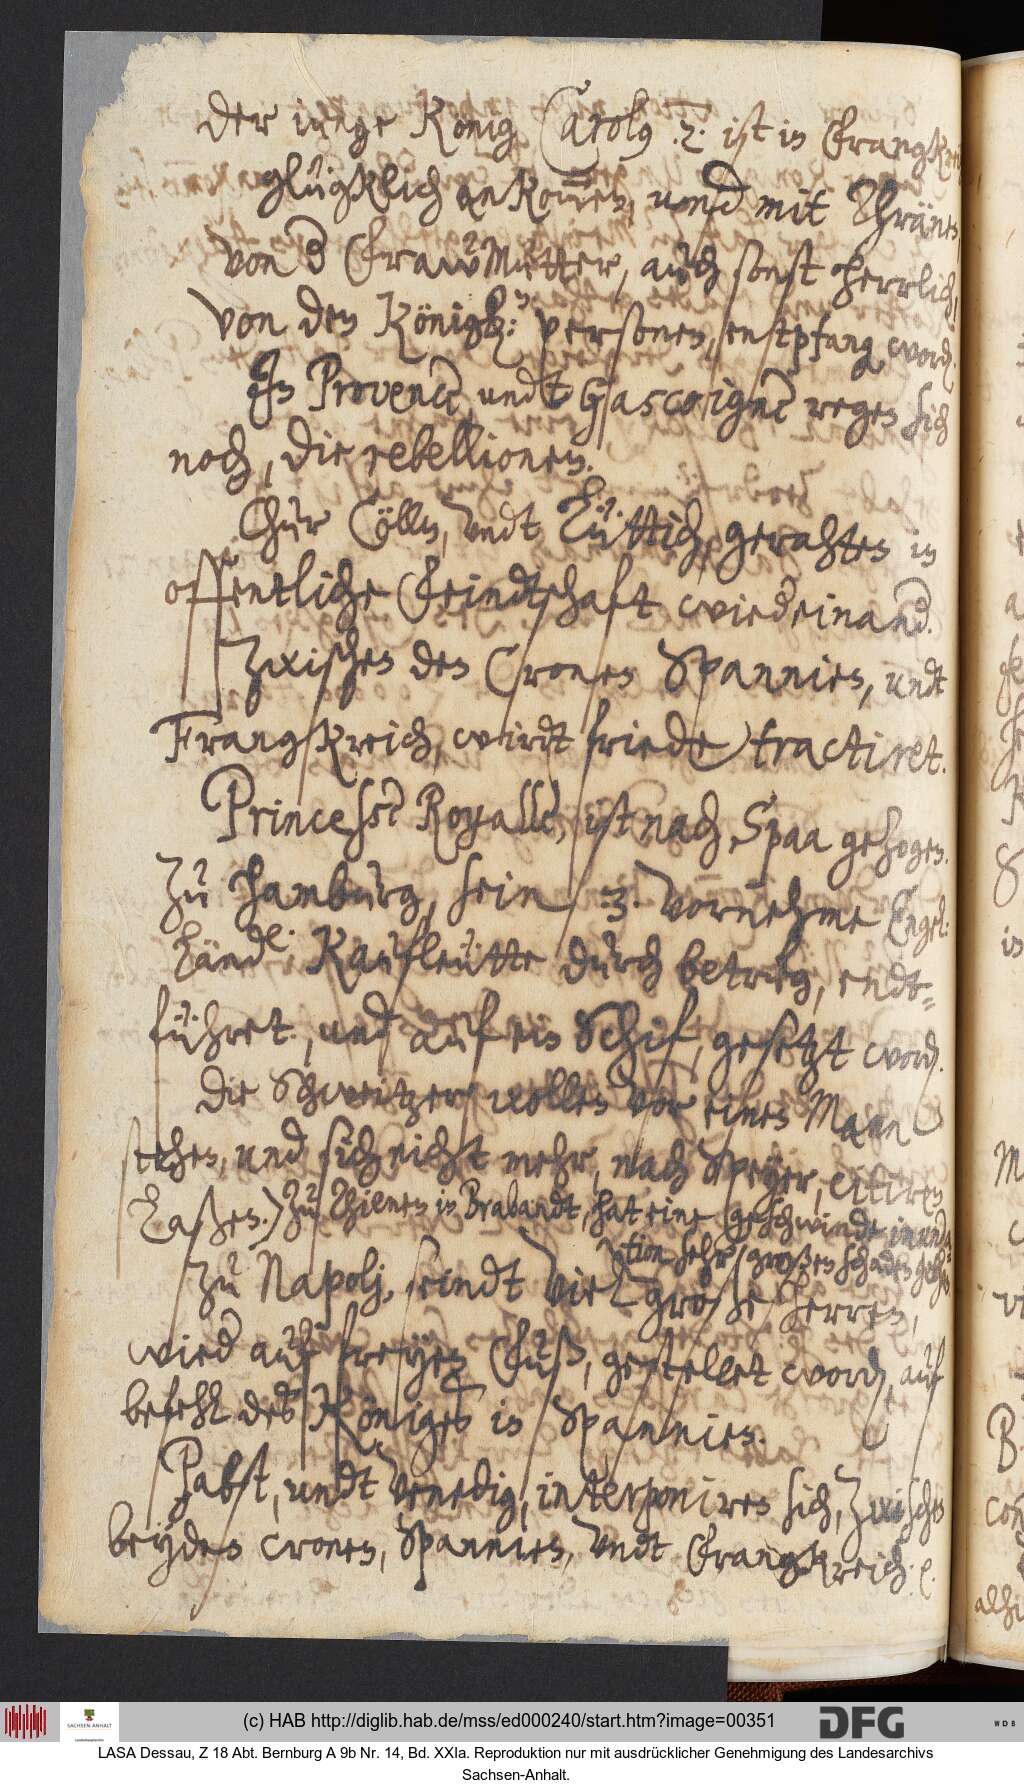 der iunge König Carol9 .2. ist in Frangkrei
glügklich ankom̄en, und mit Thränen,
von d Fraw Mutter, auch sonst herrlich,
von den Königl: personen, entpfang word.
In Provence undt Gascoigne reges sich
noch, die rebellionen.
Chur Cölln, undt Lüttich, gerahten in
offentliche Feindtschaft wiedeinand.
Zwischen den Cronen Spannien, undt
Frangkreich, wirdt friede tractiret.
Princesse Royalle, ist nach Spaa gezogen.
Zu Hamburg, sein 3. vornehme Engel:
länd: Kaufleutte durch betrug, endt=
führet, und auf ein Schif, gesetzt word.
Die Schweitzer wollen vor einen Mann
stehen, und sich nicht mehr, nach Speyer, citiren
laßen.) Zu Thienen in Brabandt, hat eine geschwinde inunda=
tion sehr großen schaden gethan
Zu Napolj, seindt viel große Herren,
wied auf freyen Fuß, gestellet word, auf
befehl des Königes in Spannien.
Pabst, undt Venedig, interponiren sich, zwischen
beyden cronen, Spannien, undt Frangkreich. 
(c) HAB http://diglib.hab.de/mss/ed000240/start.htm?image=00351
DFG
WDB
SACHSEN-ANHALT
LASA Dessau, Z 18 Abt. Bernburg A 9b Nr. 14, Bd. XXIa. Reproduktion nur mit ausdrücklicher Genehmigung des Landesarchivs
Sachsen-Anhalt.